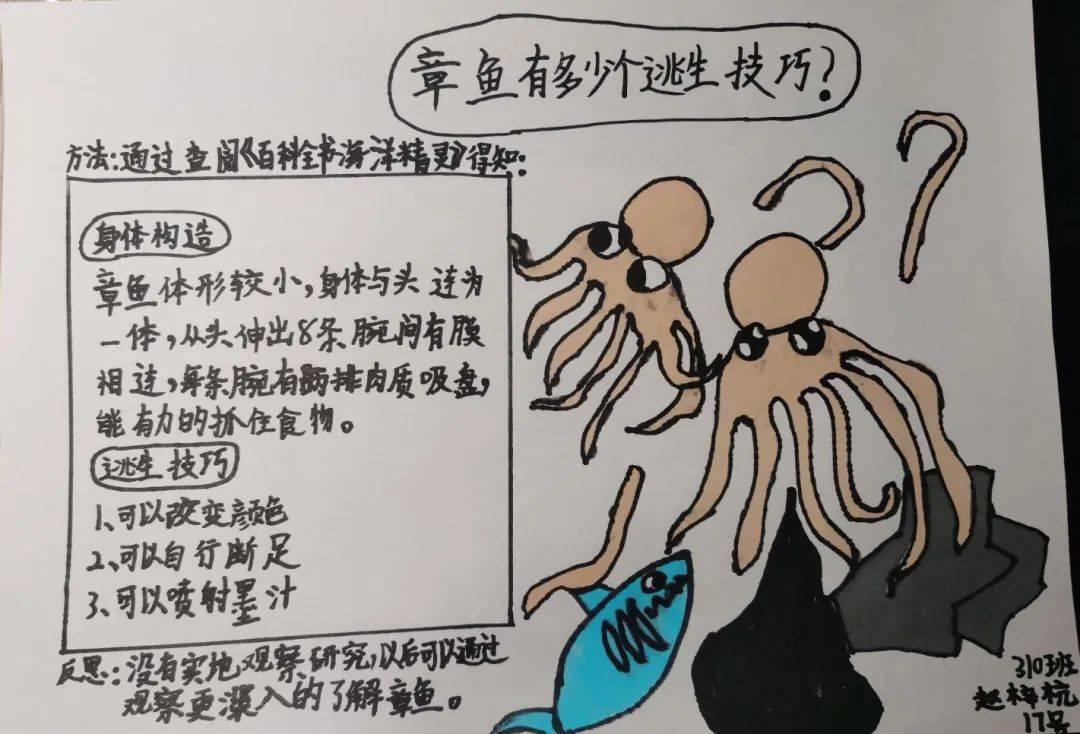 章鱼有多少个逃生技巧？
方法：通过查阅《百科全书海洋精灵》得知：
身体构造
章鱼体形较小，身体与头连为
一体，从头伸出8条腕间有膜
相连，每条腕有两排肉质吸盘，
能有力的抓住食物。
逃生技巧
1、可以改变颜色
2、可以自行断足
3、可以喷射墨汁
反思：没有实地观察研究，以后可以通过
观察更深入的了解章鱼。
310班
赵梓杭
17号